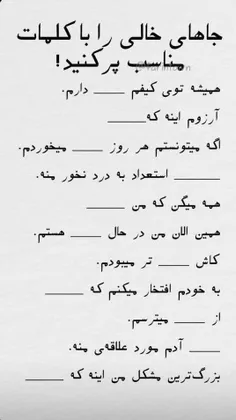 جاهای خالی را با کلمات
مناسب پر کنید!
همیشه توی کیفم ____ دارم.
آرزوم اینه که ____
اگه میتونستم هر روز ____ میخوردم.
____ استعداد به درد نخور منه.
همه میگن که من ____
همین الان من در حال ____ هستم.
کاش ____ تر میبودم.
به خودم افتخار میکنم که ____
از ____ میترسم.
____ آدم مورد علاقه‌ی منه.
بزرگ‌ترین مشکل من اینه که ____